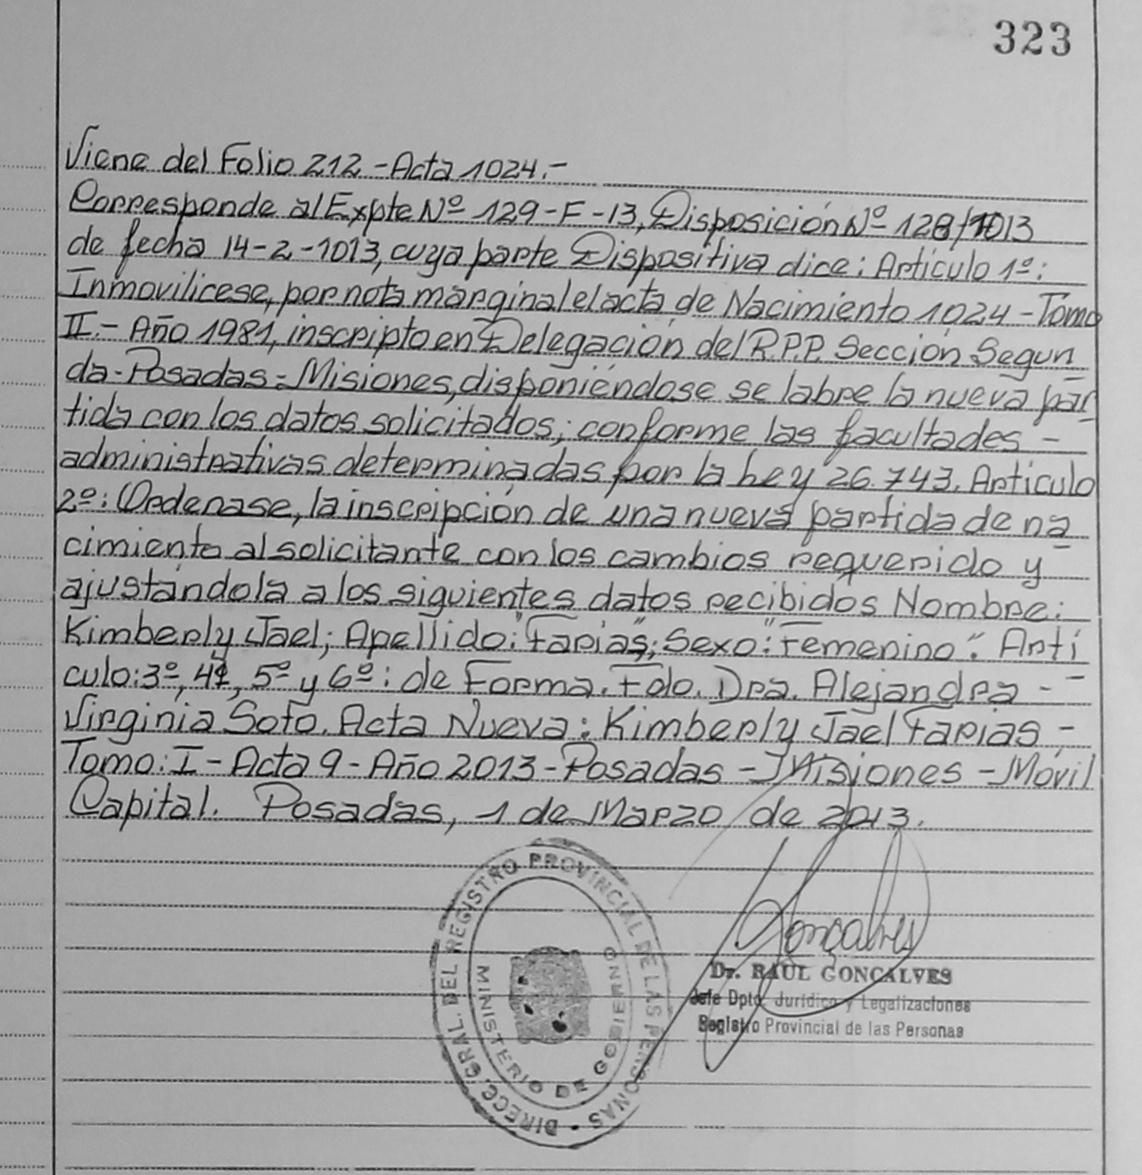 323
Viene del Folio 212 - Acta 1024.-
Corresponde al Expte Nº 129-F-13, Disposición Nº 128/1013
de fecha 14-2-1013, cuya parte Dispositiva dice: Artículo 1º:
Inmovilicese, por nota marginal el acta de Nacimiento 1024 - Tomo
II.- Año 1981, inscripto en Delegación del R.P.P. Sección Segun
da - Posadas - Misiones, disponiéndose se labre la nueva par
tida con los datos solicitados, conforme las facultades -
administrativas determinadas por la Ley 26.743. Artículo
2º: Ordenase, la inscripción de una nueva partida de na
cimiento al solicitante con los cambios requerido y
ajustándola a los siguientes datos recibidos Nombre:
Kimberly Jael; Apellido: "Farias"; Sexo: "Femenino". Artí
culo: 3º, 4º, 5º y 6º: de Forma. Fdo. Dra. Alejandra -
Virginia Soto. Acta Nueva: Kimberly Jael Farias -
Tomo: I - Acta 9 - Año 2013 - Posadas - Misiones - Móvil
Capital. Posadas, 1 de Marzo de 2013.
DIRECC. GRAL. DEL REGISTRO PROVINCIAL DE LAS PERSONAS
MINISTERIO DE GOBIERNO
Gonçalves
Dr. RAUL GONCALVES
Jefe Dpto. Jurídico y Legalizaciones
Registro Provincial de las Personas